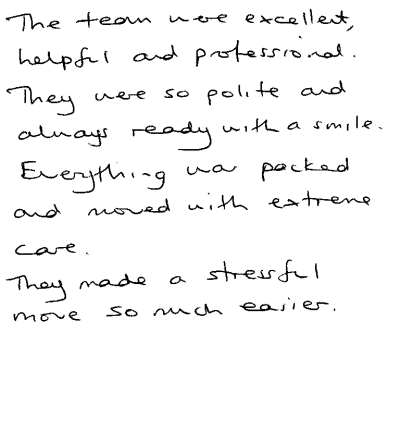 The team were excellent,
helpful and professional.
They were so polite and
always ready with a smile.
Everything was packed
and moved with extreme
care.
They made a stressful
move so much easier.